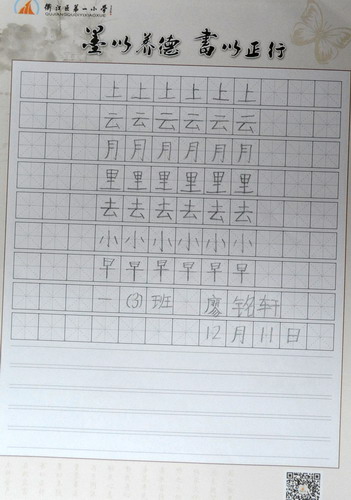 衢江区第一小学
QUJIANGQUDIYIXIAOXUE
墨以养德 書以正行
上上上上上上
云云云云云云
月月月月月月
里里里里里里
去去去去去去
小小小小小小
早早早早早早
一(3)班 廖铭轩
12月11日